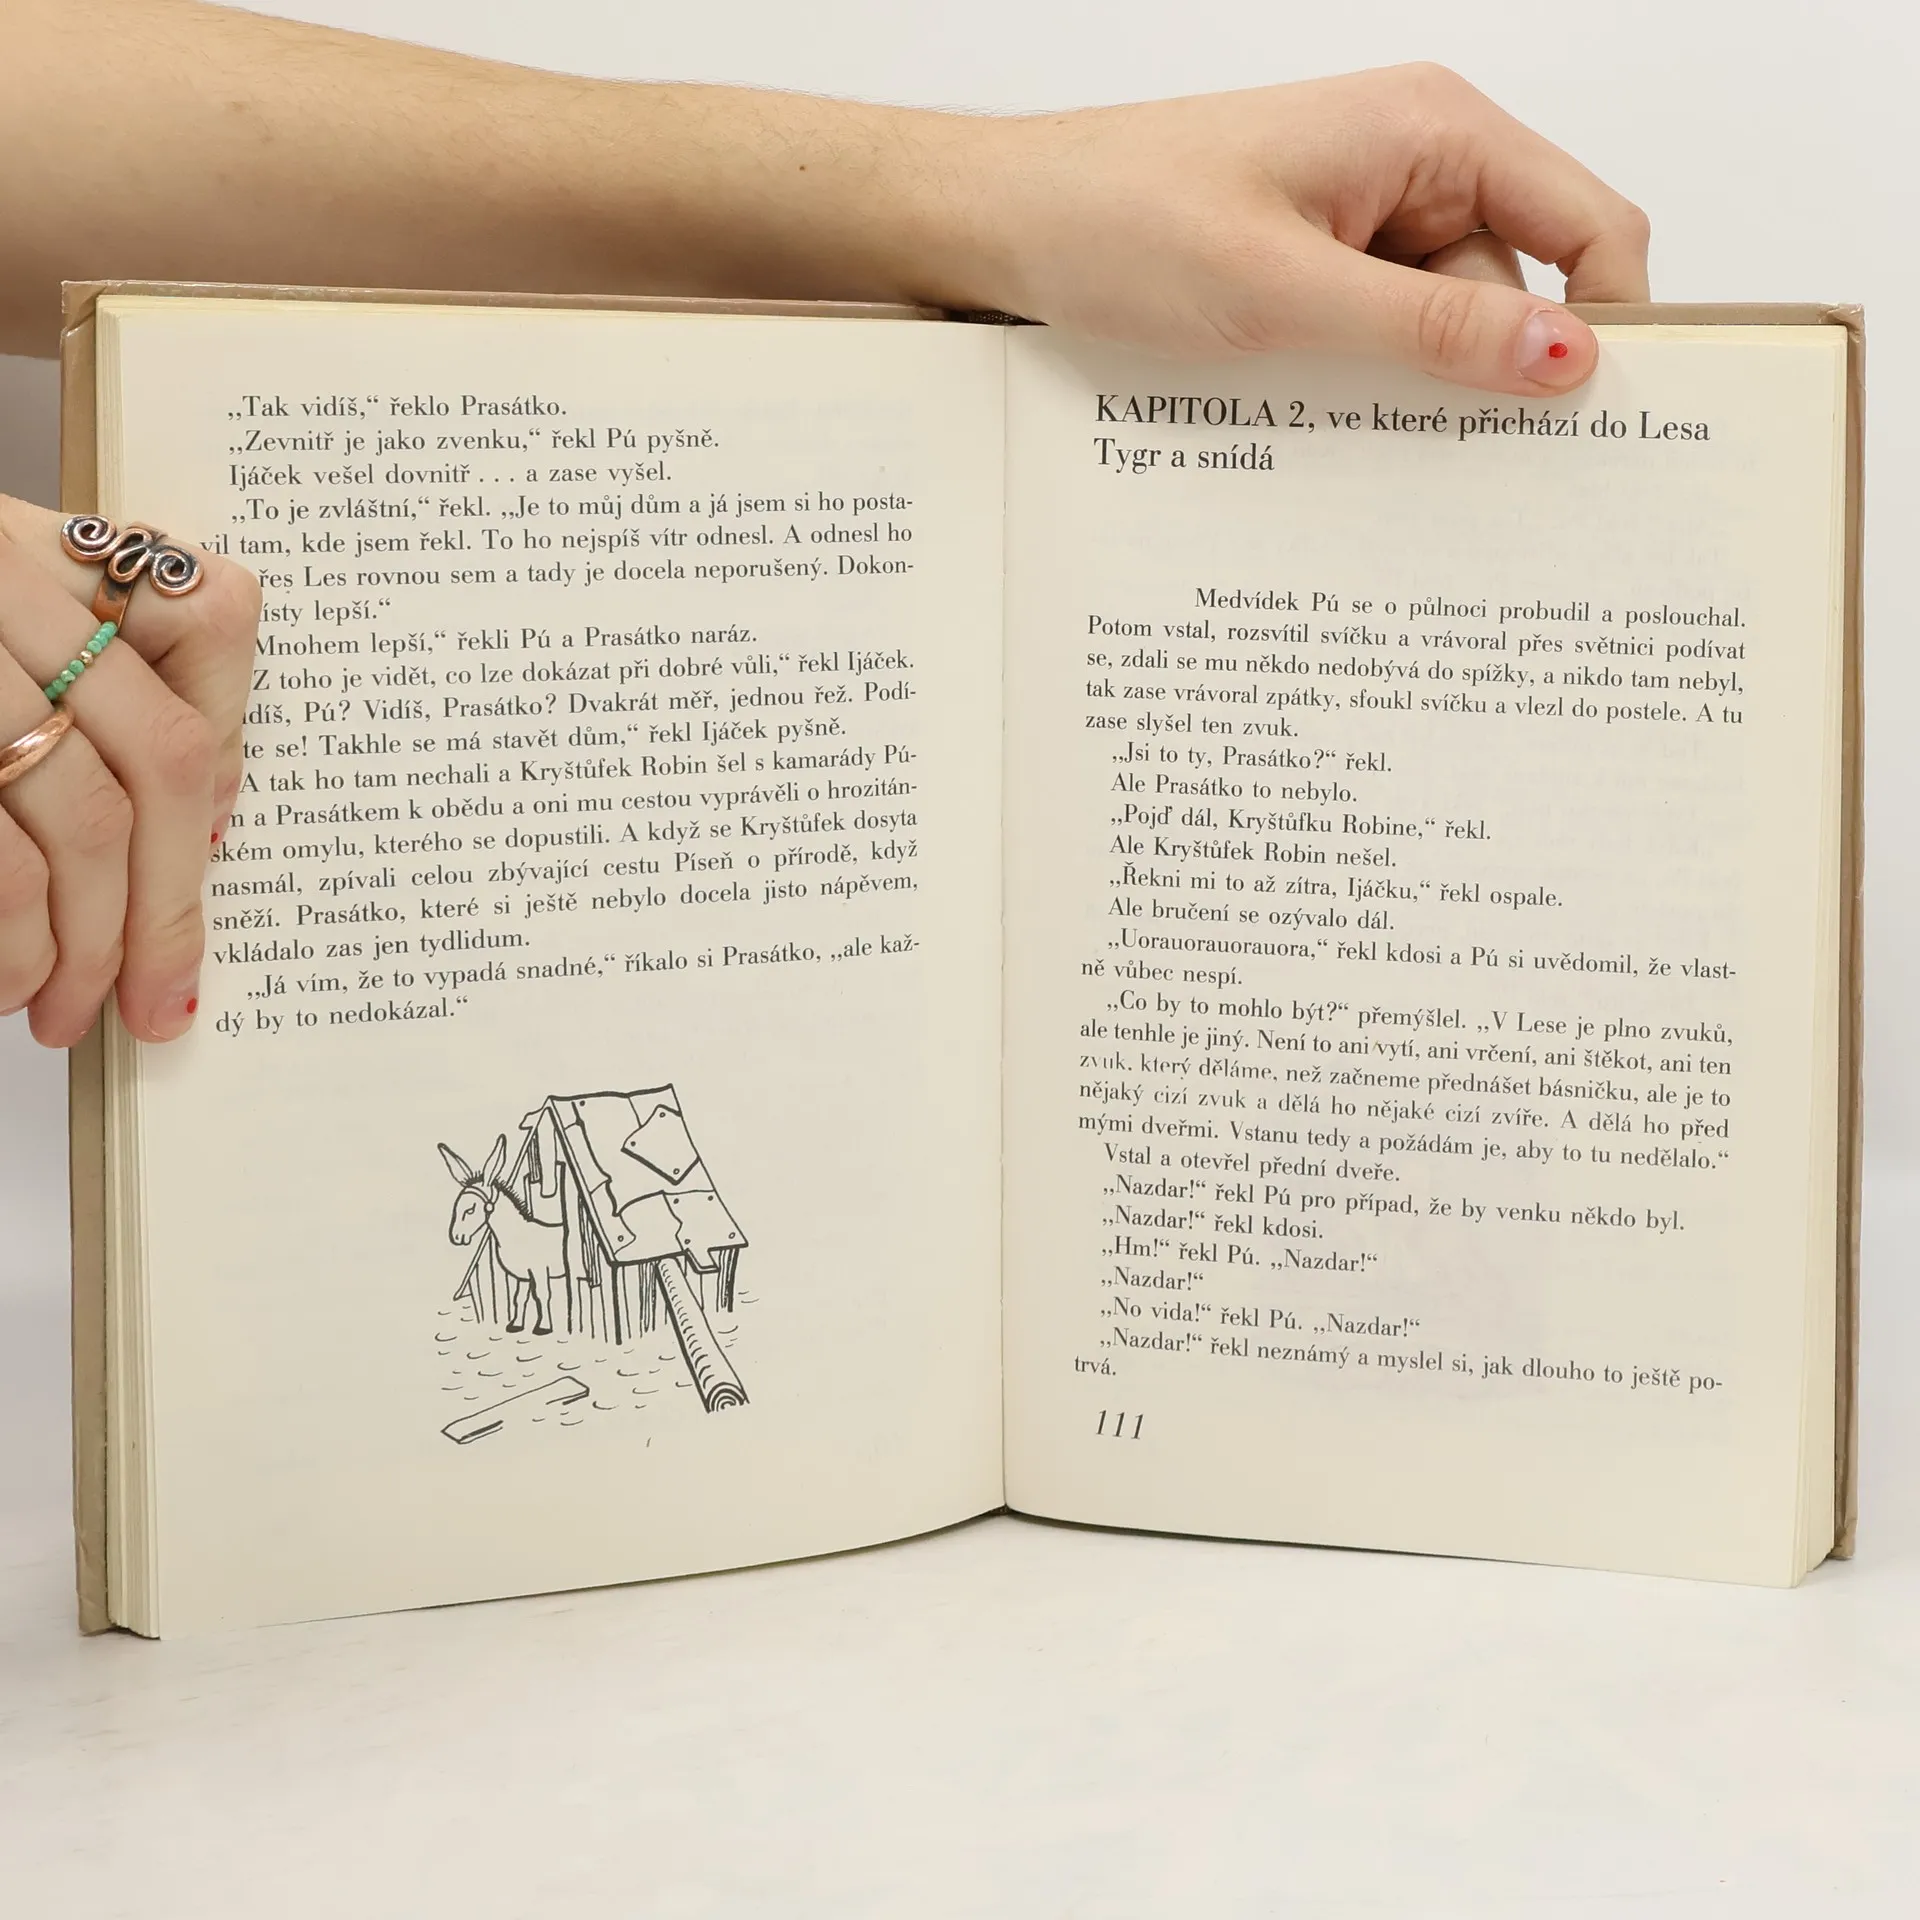 „Tak vidíš,“ řeklo Prasátko.
„Zevnitř je jako zvenku,“ řekl Pú pyšně.
Ijáček vešel dovnitř . . . a zase vyšel.
„To je zvláštní,“ řekl. „Je to můj dům a já jsem si ho posta-
vil tam, kde jsem řekl. To ho nejspíš vítr odnesl. A odnesl ho
řes Les rovnou sem a tady je docela neporušený. Dokon-
ísty lepší.“
Mnohem lepší,“ řekli Pú a Prasátko naráz.
Z toho je vidět, co lze dokázat při dobré vůli,“ řekl Ijáček.
díš, Pú? Vidíš, Prasátko? Dvakrát měř, jednou řež. Podí-
te se! Takhle se má stavět dům,“ řekl Ijáček pyšně.
A tak ho tam nechali a Kryštůfek Robin šel s kamarády Pú-
m a Prasátkem k obědu a oni mu cestou vyprávěli o hrozitán-
ském omylu, kterého se dopustili. A když se Kryštůfek dosyta
nasmál, zpívali celou zbývající cestu Píseň o přírodě, když
sněží. Prasátko, které si ještě nebylo docela jisto nápěvem,
vkládalo zas jen tydlidum.
„Já vím, že to vypadá snadné,“ říkalo si Prasátko, „ale kaž-
dý by to nedokázal.“
KAPITOLA 2, ve které přichází do Lesa
Tygr a snídá
Medvídek Pú se o půlnoci probudil a poslouchal.
Potom vstal, rozsvítil svíčku a vrávoral přes světnici podívat
se, zdali se mu někdo nedobývá do spížky, a nikdo tam nebyl,
tak zase vrávoral zpátky, sfoukl svíčku a vlezl do postele. A tu
zase slyšel ten zvuk.
„Jsi to ty, Prasátko?“ řekl.
Ale Prasátko to nebylo.
„Pojď dál, Kryštůfku Robine,“ řekl.
Ale Kryštůfek Robin nešel.
„Řekni mi to až zítra, Ijáčku,“ řekl ospale.
Ale bručení se ozývalo dál.
„Uorauorauorauora,“ řekl kdosi a Pú si uvědomil, že vlast-
ně vůbec nespí.
„Co by to mohlo být?“ přemýšlel. „V Lese je plno zvuků,
ale tenhle je jiný. Není to ani vytí, ani vrčení, ani štěkot, ani ten
zvuk, který děláme, než začneme přednášet básničku, ale je to
nějaký cizí zvuk a dělá ho nějaké cizí zvíře. A dělá ho před
mými dveřmi. Vstanu tedy a požádám je, aby to tu nedělalo.“
Vstal a otevřel přední dveře.
„Nazdar!“ řekl Pú pro případ, že by venku někdo byl.
„Nazdar!“ řekl kdosi.
„Hm!“ řekl Pú. „Nazdar!“
„Nazdar!“
„No vida!“ řekl Pú. „Nazdar!“
„Nazdar!“ řekl neznámý a myslel si, jak dlouho to ještě po-
trvá.
111